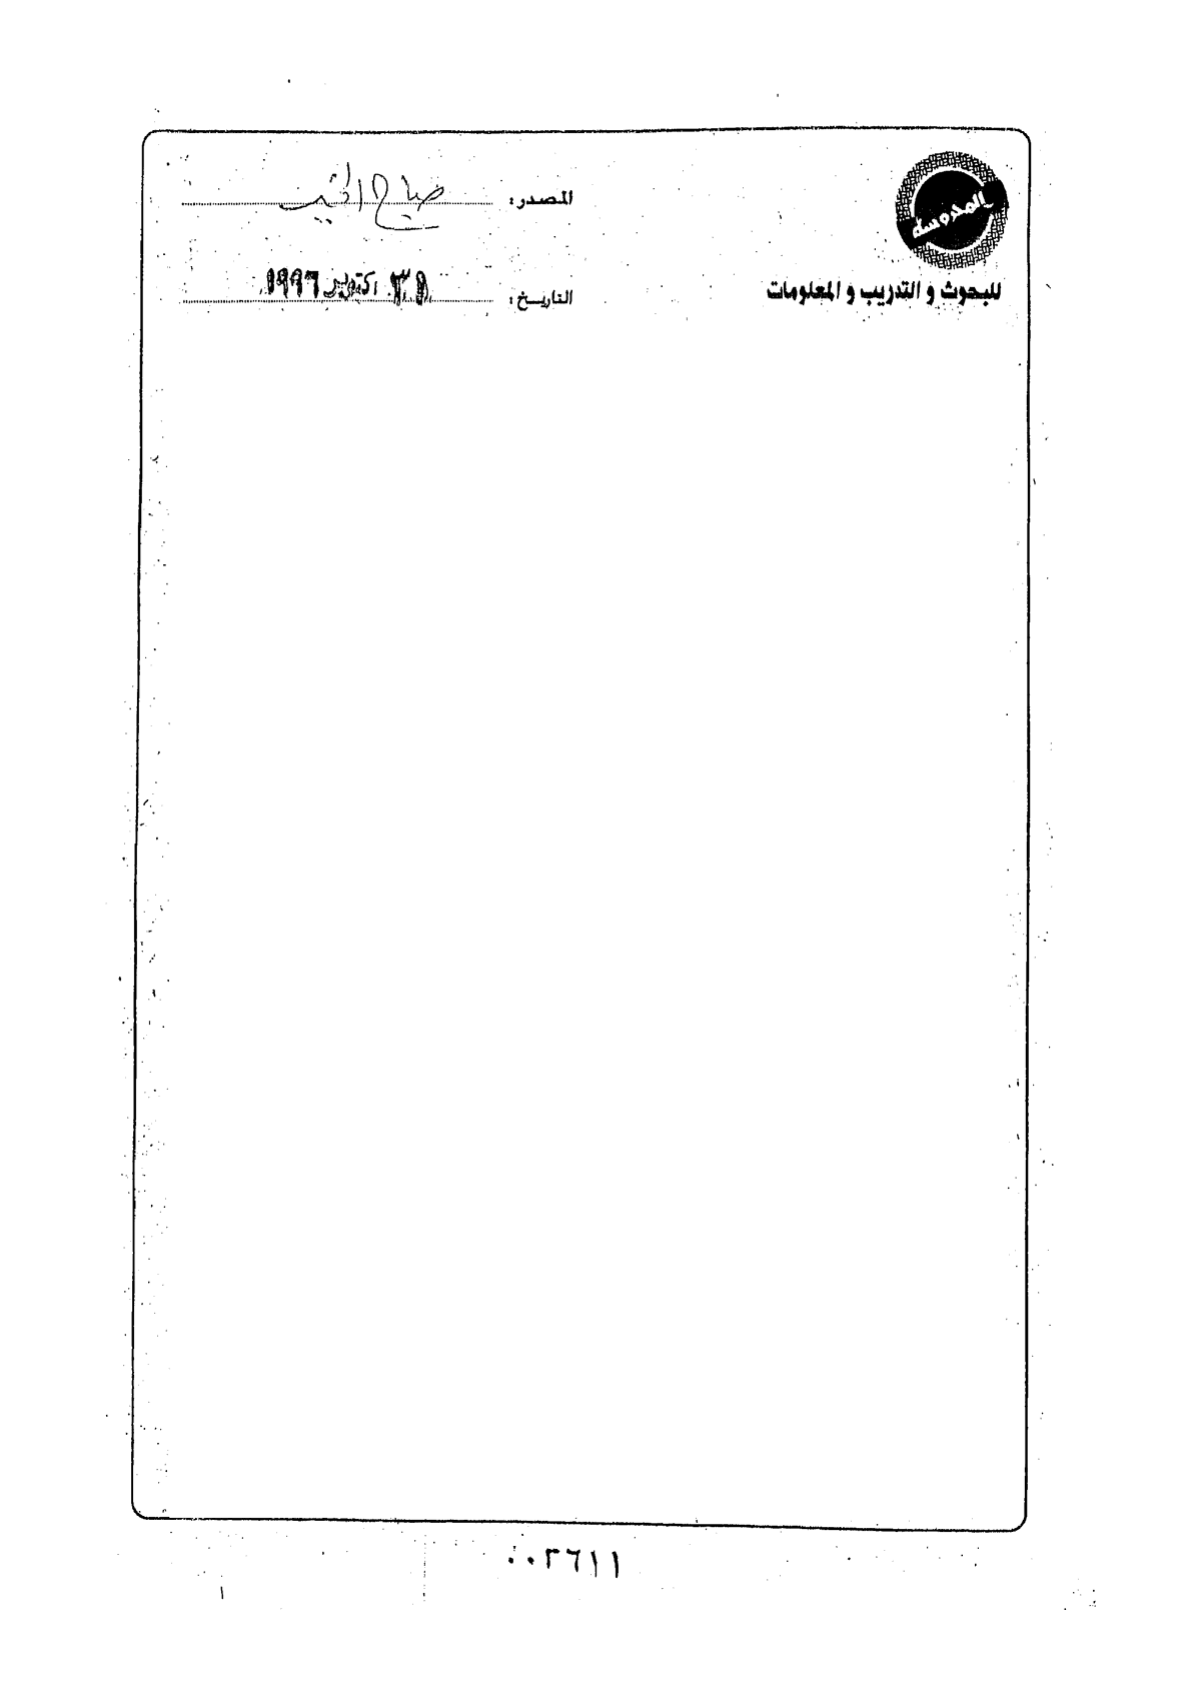 المحروسة
للبحوث و التدريب و المعلومات
المصدر: صباح الخير
التاريخ: ٣١ أكتوبر ١٩٩٦
٠٠٢٦١١